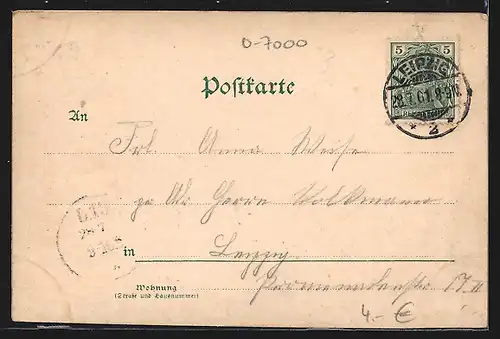 D-7000
5 5
Postkarte
LEIPZIG
28.7.01. 8-9N.
* 2 *
An
Frl. Anna Weise
Herrn Volkmann
28 7
in Leipzig
Wohnung
(Straße und Hausnummer)
17 II
4.- €